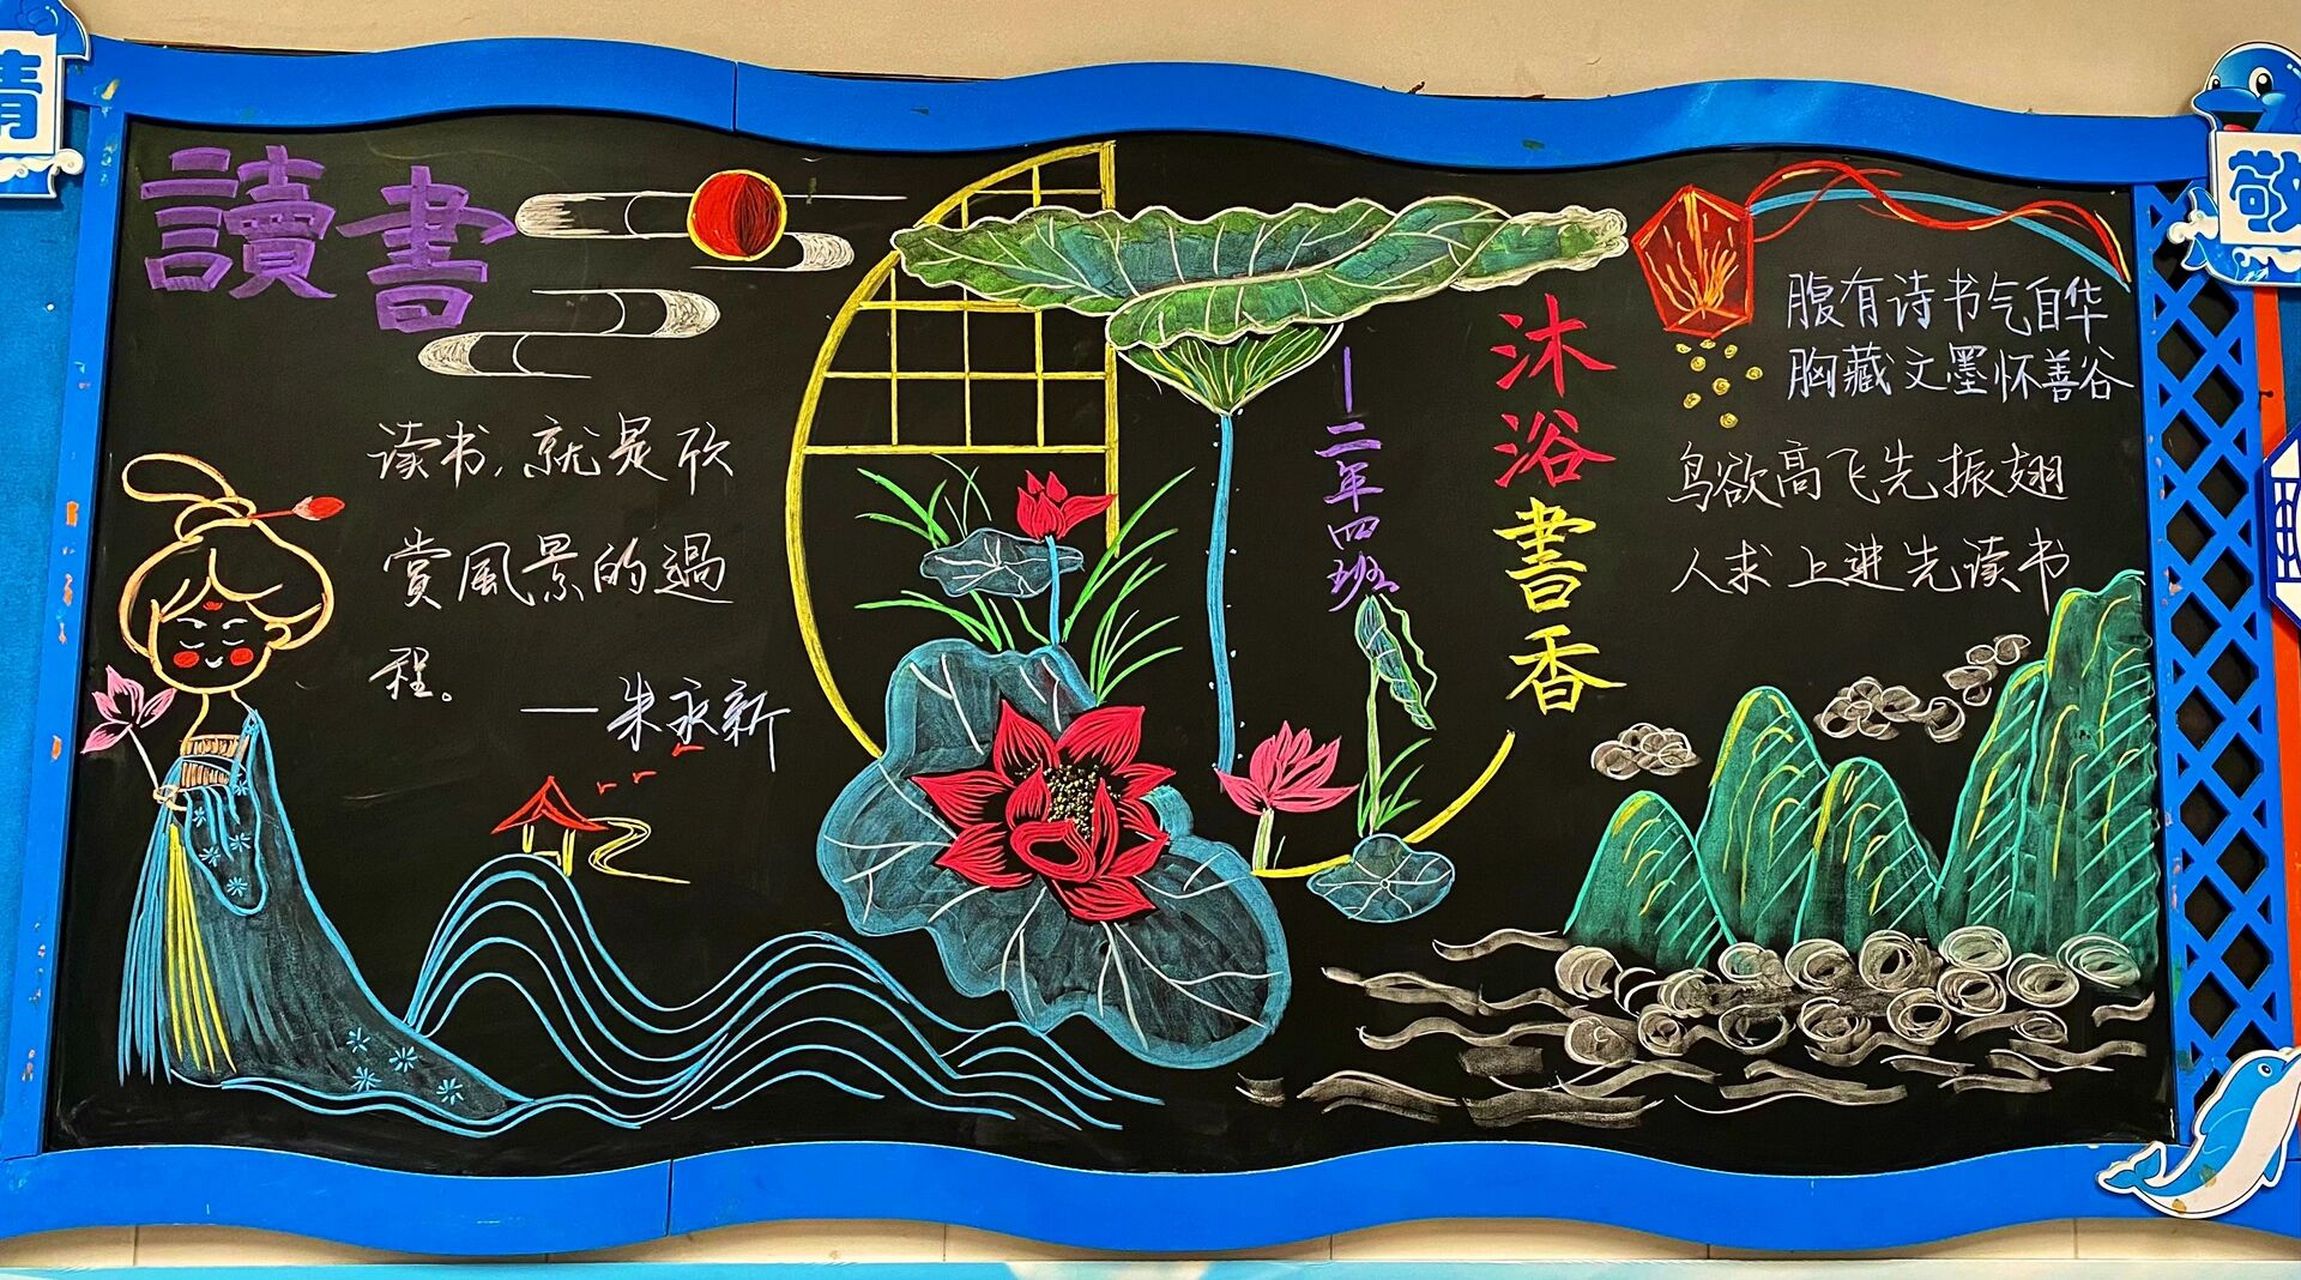 情
敬
讀書
读书,就是欣
赏風景的過
程。
——朱永新
沐浴書香
—二年四班
腹有诗书气自华
胸藏文墨怀善谷
鸟欲高飞先振翅
人求上进先读书